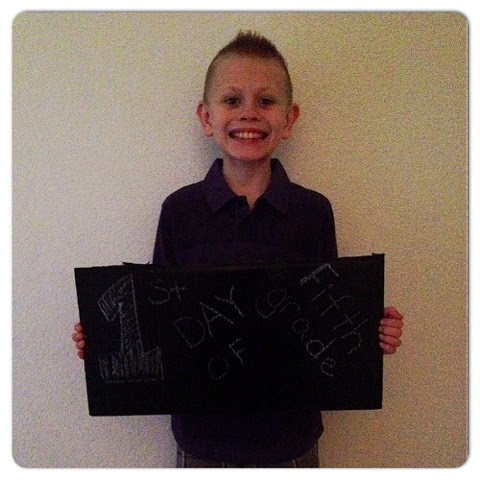 1st
DAY
OF
Fifth
grade